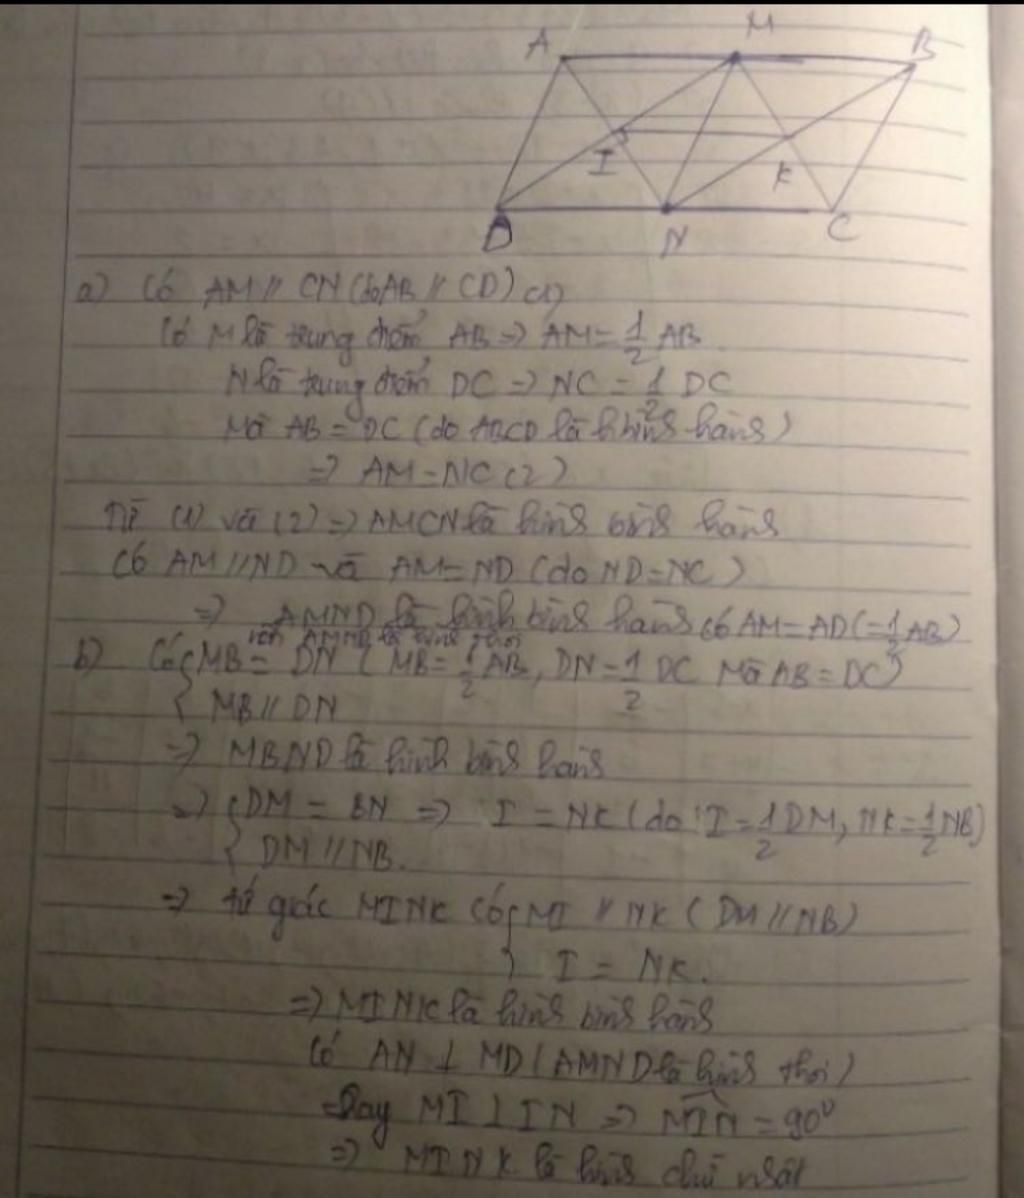 A M B
I K
D N C
a) Có AM // CN (do AB // CD) (1)
Có M là trung điểm AB => AM = 1/2 AB
N là trung điểm DC => NC = 1/2 DC
Mà AB = DC (do ABCD là hbình hành)
=> AM = NC (2)
Từ (1) và (2) => AMCN là hình bình hành
Có AM // ND và AM = ND (do ND = NC)
=> AMND là hình bình hành có AM = AD (= 1/2 AB)
nên AMND là hình thoi
b) Có { MB = DN ( MB = 1/2 AB, DN = 1/2 DC Mà AB = DC )
MB // DN
=> MBND là hình bình hành
=> { DM = BN => I = NK (do I = 1/2 DM, NK = 1/2 NB)
DM // NB.
=> tứ giác MINK có { MI // NK ( DM // NB)
I = NK.
=> MINK là hình bình hành
Có AN ⊥ MD ( AMND là hình thoi )
Hay MI ⊥ IN => MIN = 90⁰
=> MINK là hình chữ nhật